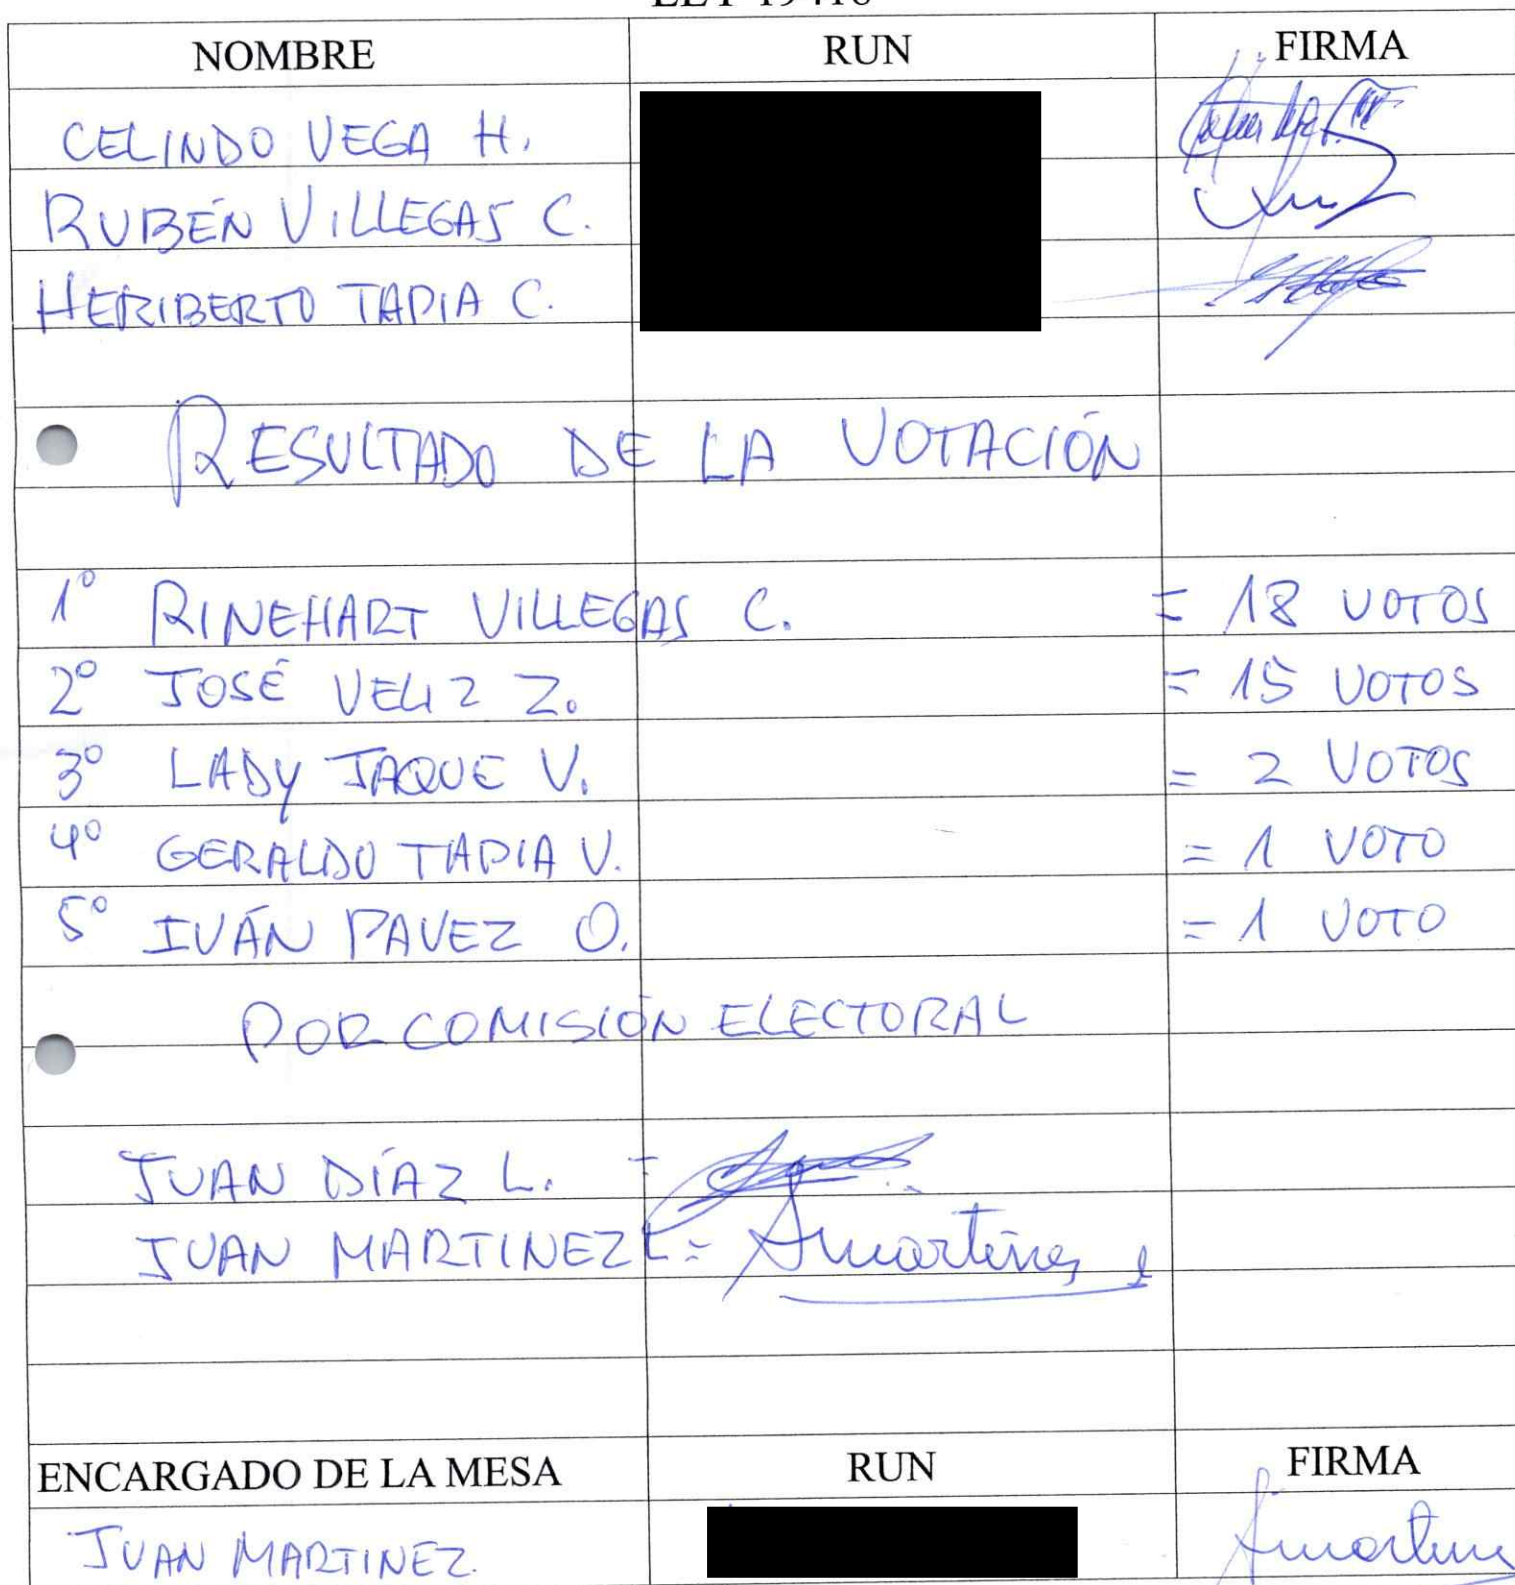 LEY 19418
NOMBRE RUN FIRMA
CELINDO VEGA H.
RUBÉN VILLEGAS C.
HERIBERTO TAPIA C.
RESULTADO DE LA VOTACIÓN
1° RINEHART VILLEGAS C. = 18 VOTOS
2° JOSÉ VELIZ Z. = 15 VOTOS
3° LADY JAQUE V. = 2 VOTOS
4° GERALDO TAPIA V. = 1 VOTO
5° IVÁN PAVEZ O. = 1 VOTO
POR COMISIÓN ELECTORAL
JUAN DÍAZ L. =
JUAN MARTINEZ L = Jmartinez L
ENCARGADO DE LA MESA RUN FIRMA
JUAN MARTINEZ. Jmartinez